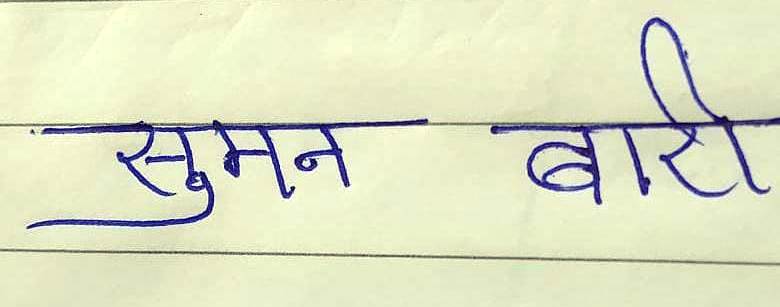 सुमन बारी